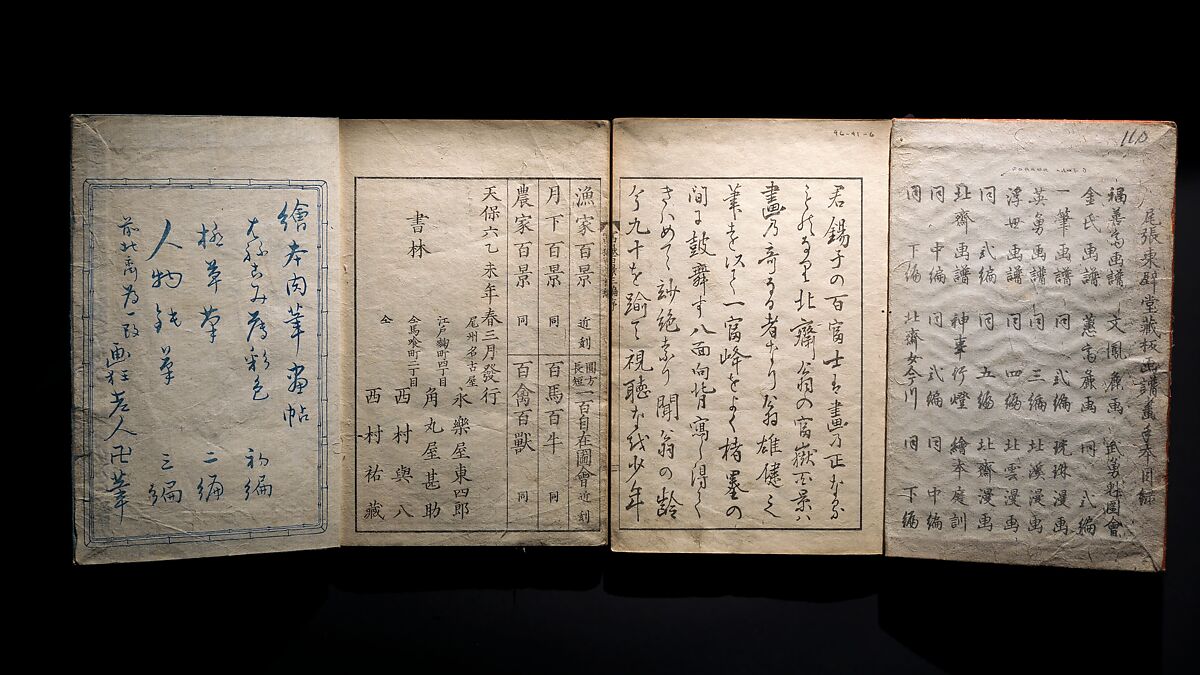 96-91-6
110
尾張東壁堂藏板画譜畫手本目録
福善斎画譜 文鳳麁画 武勇魁図會
金氏画譜 蕙斎麁画 同 弐編
一筆画譜 同 弐編 漫画
英勇画譜 同 三編 北溪漫画
浮世画譜 同 四編 北雲漫画
同 弐編 同 五編 北齋漫画
北齋画譜 神事行燈 繪本庭訓
同 中編 同 弐編 同 中編
同 下編 北齋女今川 同 下編
君錫子の百富士は畫乃正なる
ものなり北齋翁の富嶽百景ハ
畫乃奇なる者なり翁雄健之
筆を以て一富峰をよく楮墨の
間に鼓舞す八面向背寫し得て
きハめて玅絶なり聞翁の齢
今九十を踰て視聴なほ少年
漁家百景 近刻 圓方長短 一百自在圖會 近刻
月下百景 同 百馬百牛 同
農家百景 同 百禽百獸 同
天保六乙未年春三月發行
書林
尾州名古屋 永樂屋東四郎
江戸麹町四丁目 角丸屋甚助
仝馬喰町二丁目 西村與八
仝 西村祐藏
繪本肉筆画帖
薄彩色 初編
草筆 二編
人物鈍筆 三編
前北齋為一改画狂老人卍筆